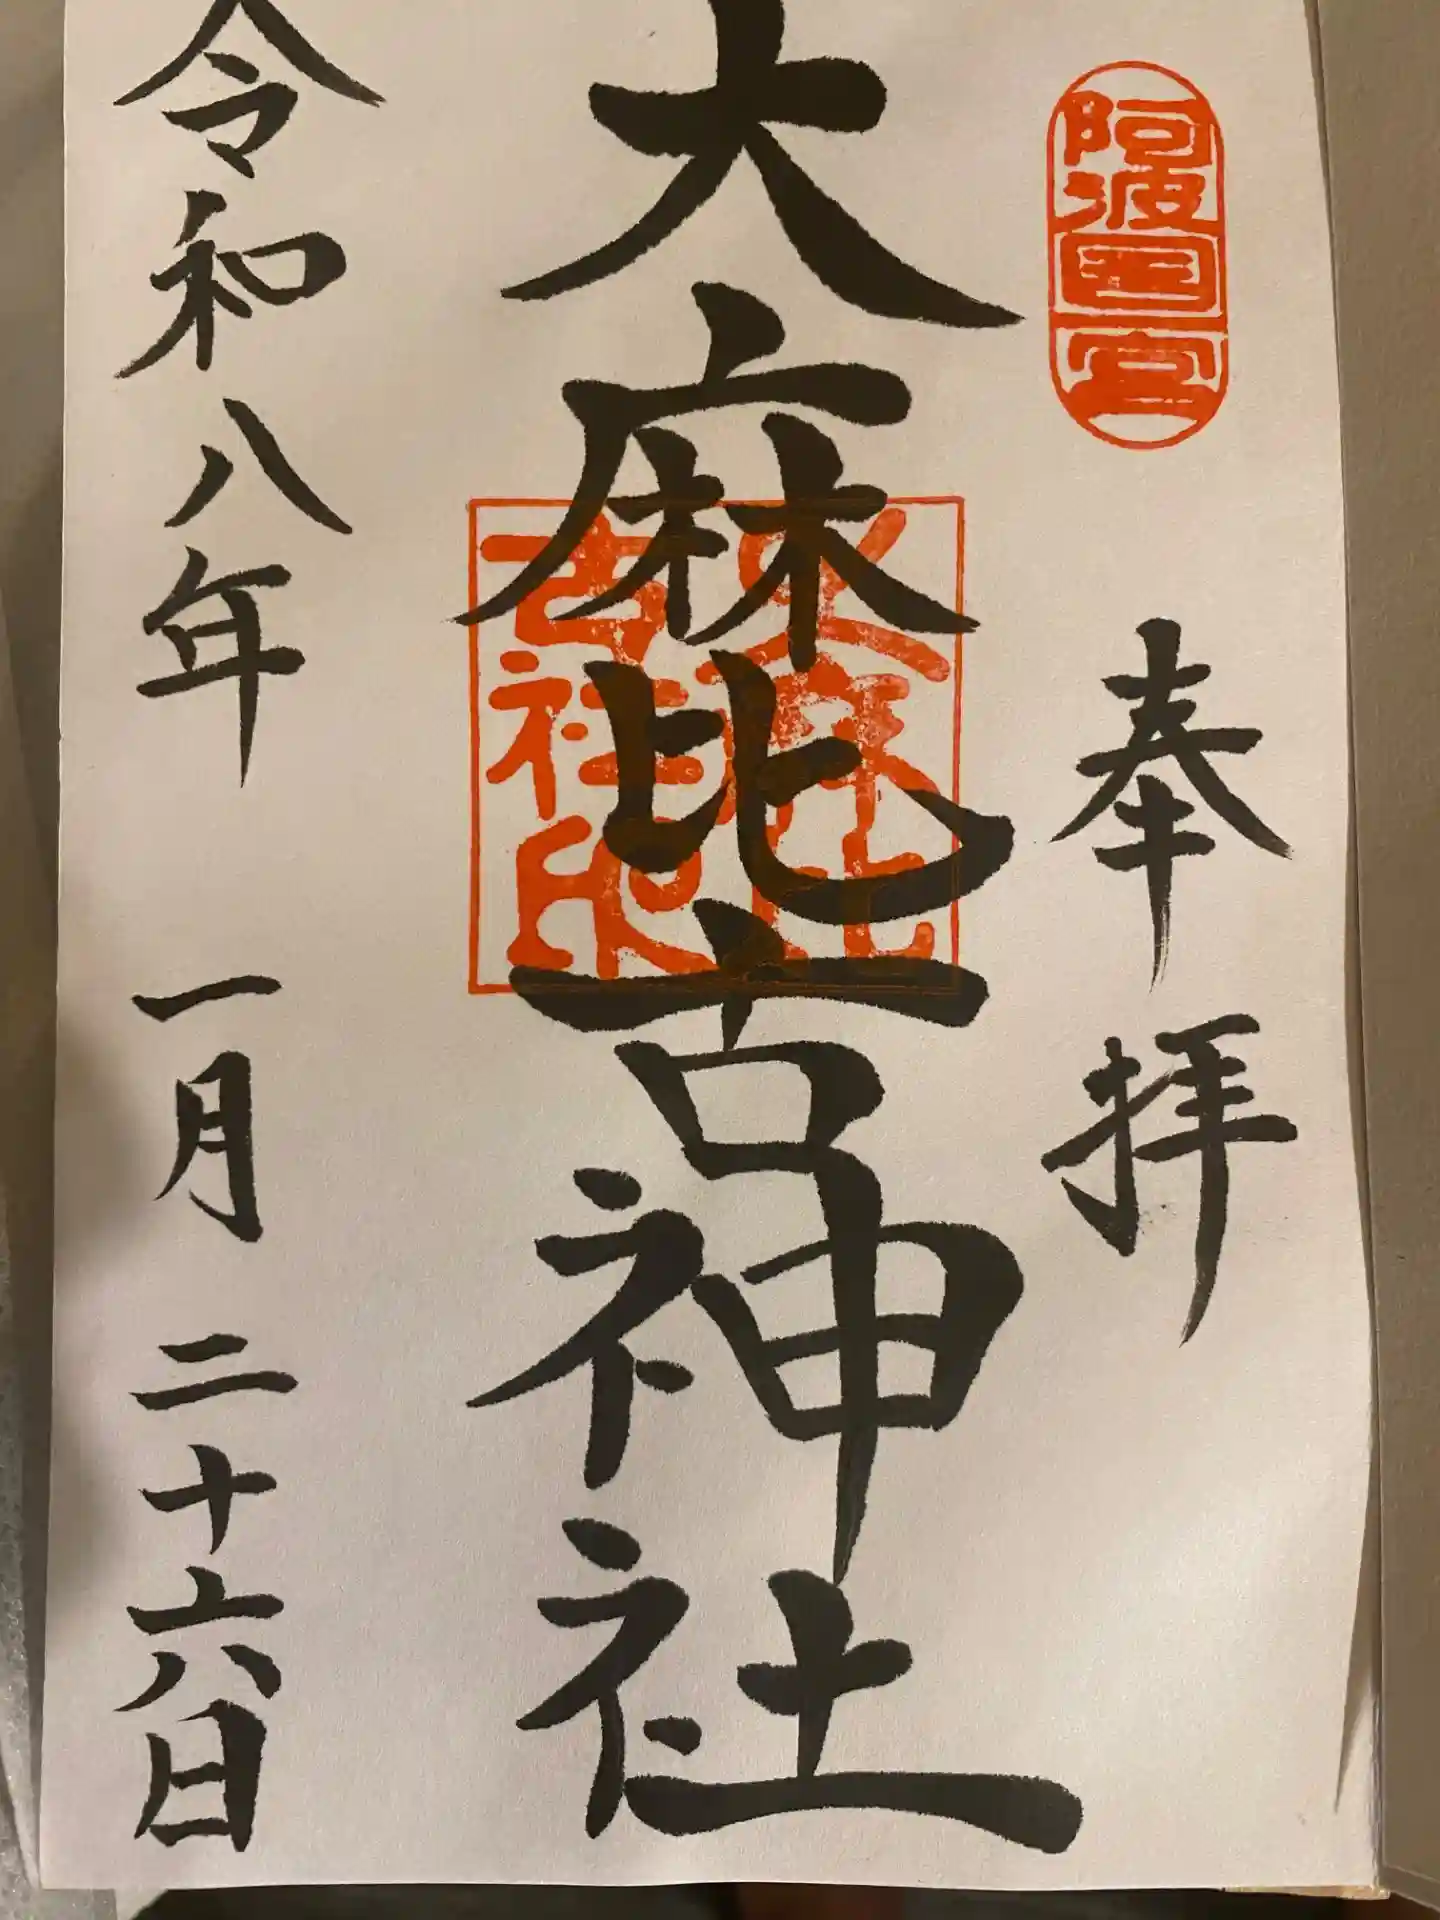 阿波國一宮
奉拝
大麻比古神社
大麻比古社印
令和八年 一月 二十六日